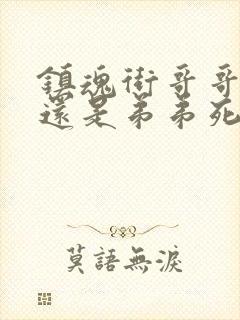 鎮魂街哥哥
還是弟弟死
莫語無淚